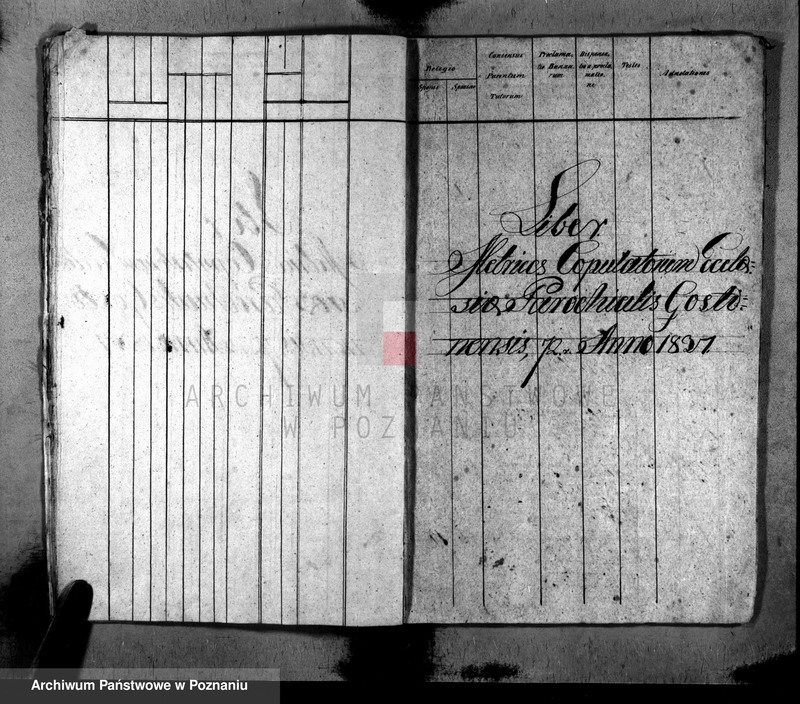 Religio
Sponsi
Sponsae
Consensus
Parentum
Tutorum
Proclama,
tio Banno
rum
Dispensa,
tio a procla
matio,
ne
Testes
Adnotationes
Liber
Metrices Copulatorum Eccle=
siæ Parochialis Gosto=
nensis, p. Anno 1837
ARCHIWUM PAŃSTWOWE
W POZNANIU
Archiwum Państwowe w Poznaniu